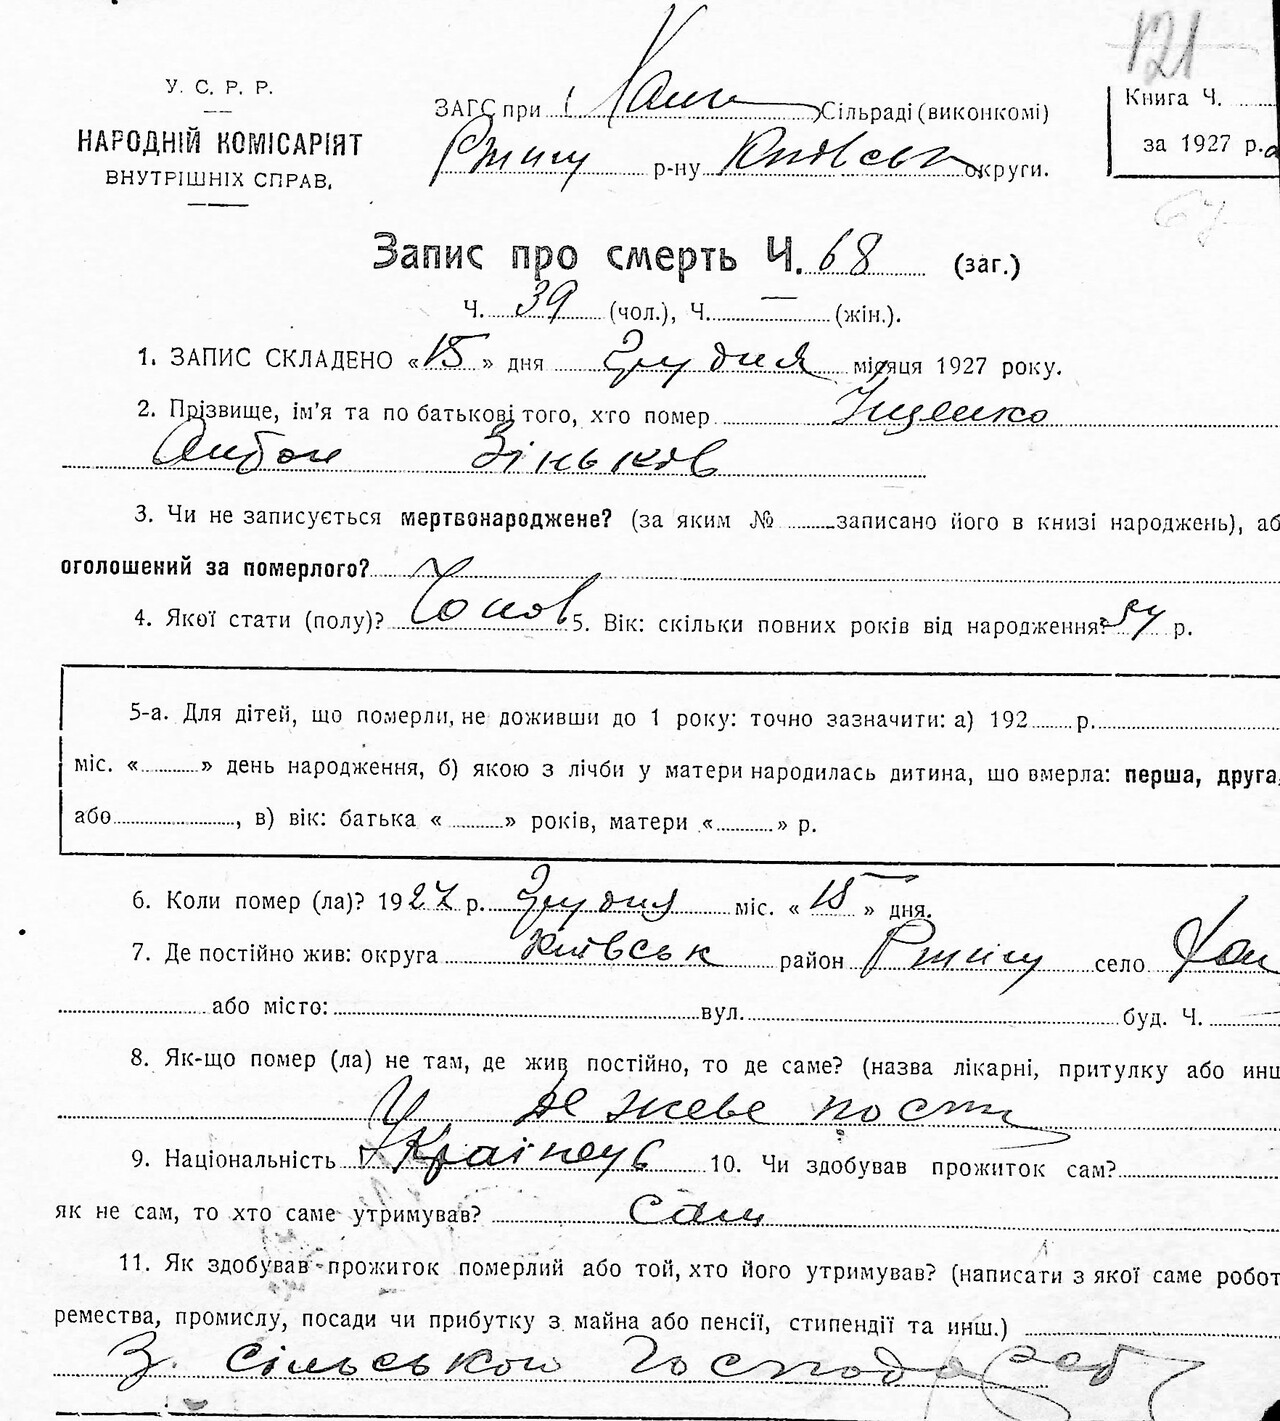 121
У. С. Р. Р.
НАРОДНІЙ КОМІСАРІЯТ
ВНУТРІШНІХ СПРАВ.
ЗАГС при Сільраді (виконкомі)
Ржищ р-ну Київськ округи.
Книга Ч.
за 1927 р.
67
Запис про смерть Ч. 68 (заг.)
Ч. 39 (чол.), Ч. — (жін.).
1. ЗАПИС СКЛАДЕНО « 15 » дня Грудня місяця 1927 року.
2. Прізвище, ім'я та по батькові того, хто помер Іщенко
Антон Зіньков
3. Чи не записується мертвонароджене? (за яким № записано його в книзі народжень), аб
оголошений за померлого?
4. Якої стати (полу)? Чолов 5. Вік: скільки повних років від народження? 54 р.
5-а. Для дітей, що померли, не доживши до 1 року: точно зазначити: а) 192 р.
міс. « » день народження, б) якою з лічби у матери народилась дитина, що вмерла: перша, друга,
або , в) вік: батька « » років, матери « » р.
6. Коли помер (ла)? 1927 р. Грудня міс. « 15 » дня.
7. Де постійно жив: округа Київськ район Ржищ село
або місто: вул. буд. Ч.
8. Як-що помер (ла) не там, де жив постійно, то де саме? (назва лікарні, притулку або инш
де живе
9. Національність Українець 10. Чи здобував прожиток сам?
як не сам, то хто саме утримував? сам
11. Як здобував прожиток померлий або той, хто його утримував? (написати з якої саме робот
ремества, промислу, посади чи прибутку з майна або пенсії, стипендії та инш.)
З сільського